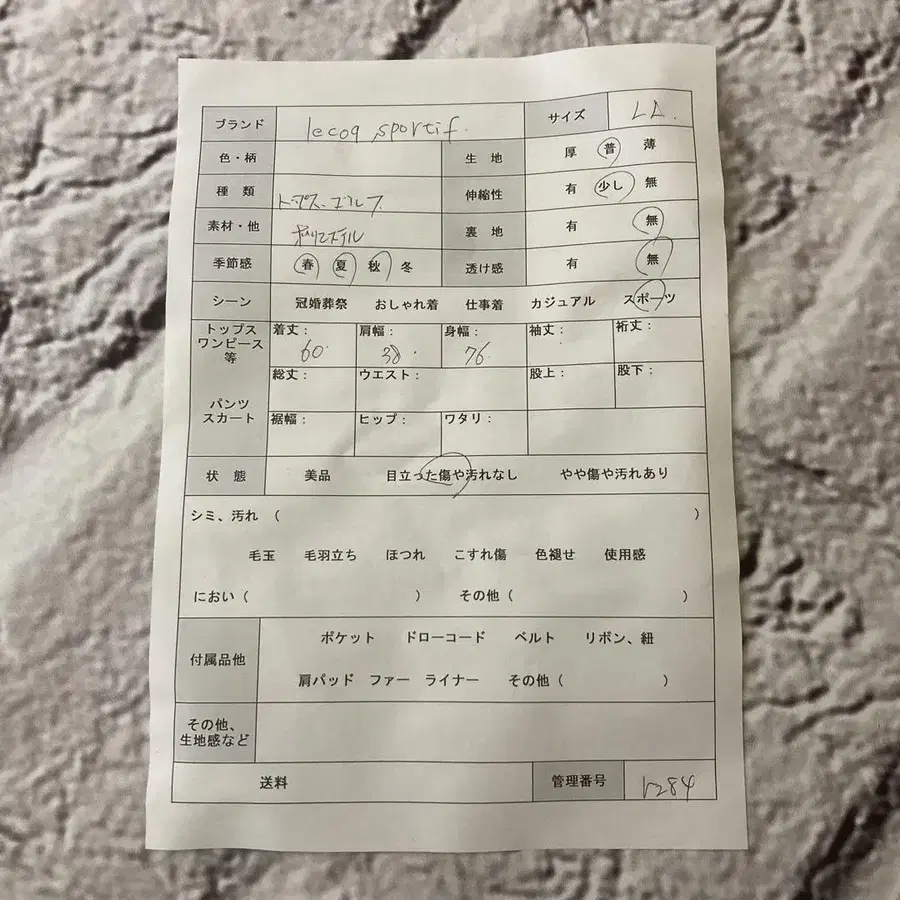 ブランド lecoq sportif. サイズ LL.
色・柄 生地 厚 普 薄
種類 トップス、ゴルフ 伸縮性 有 少し 無
素材・他 ポリエステル 裏地 有 無
季節感 春 夏 秋 冬 透け感 有 無
シーン 冠婚葬祭 おしゃれ着 仕事着 カジュアル スポーツ
トップス ワンピース 等 着丈： 60 肩幅： 38 身幅： 76 袖丈： 裄丈：
パンツ スカート 総丈： ウエスト： 股上： 股下：
裾幅： ヒップ： ワタリ：
状態 美品 目立った傷や汚れなし やや傷や汚れあり
シミ、汚れ （ ）
毛玉 毛羽立ち ほつれ こすれ傷 色褪せ 使用感
におい（ ） その他（ ）
付属品他 ポケット ドローコード ベルト リボン、紐
肩パッド ファー ライナー その他（ ）
その他、
生地感など
送料 管理番号